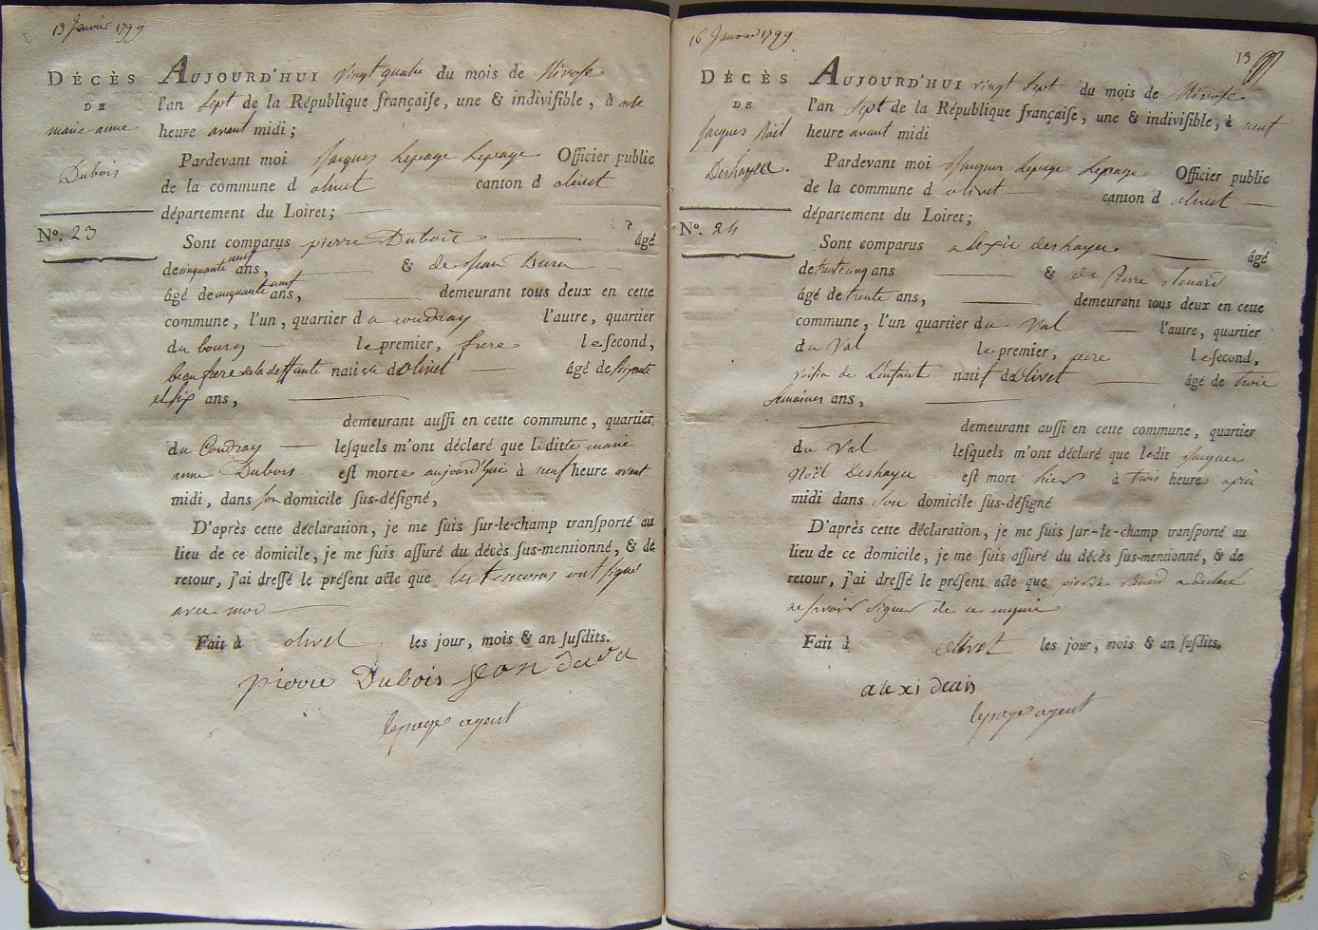 13 Janvier 1799
DÉCÈS
DE
marie anne
Dubois
Nº. 23
AUJOURD'HUI vingt quatre du mois de Nivose
l'an sept de la République françaiſe, une & indiviſible, à onze
heure avant midi;
Pardevant moi Jacques Lepage Lepage Officier public
de la commune d olivet canton d olivet
département du Loiret;
Sont comparus pierre Dubois âgé
de cinquante neuf ans, & de Jean
âgé de cinquante neuf ans, demeurant tous deux en cette
commune, l'un, quartier d u coudray l'autre, quartier
du bourg le premier, frere le ſecond,
beaufrere de la deffunte nati ve d Olivet âgé de soixante
et six ans,
demeurant auſſi en cette commune, quartier
du Coudray leſquels m'ont déclaré que laditte marie
anne Dubois eſt morte aujourd'hui à neuf heure avant
midi, dans son domicile ſus-déſigné,
D'après cette déclaration, je me ſuis ſur-le-champ tranſporté au
lieu de ce domicile, je me ſuis aſſuré du décès ſus-mentionné, & de
retour, j'ai dreſſé le préſent acte que les temoins ont signé
avec moi
Fait à olivet les jour, mois & an ſuſdits.
pierre Dubois Jean
lepage agent
16 Janvier 1799
13
DÉCÈS
DE
Jacques Noël
Deshayes.
Nº. 24
AUJOURD'HUI vingt sept du mois de Nivose
l'an sept de la République françaiſe, une & indiviſible, à neuf
heure avant midi
Pardevant moi Jacques Lepage Lepage Officier public
de la commune d olivet canton d olivet
département du Loiret;
Sont comparus alexis deshayes âgé
de trente cinq ans & de Pierre
âgé de trente ans, demeurant tous deux en cette
commune, l'un quartier du Val l'autre, quartier
du Val le premier, pere le ſecond,
voisin de L'enfant natif d Olivet âgé de trois
semaines ans,
demeurant auſſi en cette commune, quartier
du Val leſquels m'ont déclaré que ledit Jacques
Noël Deshayes eſt mort hier à trois heures après
midi dans son domicile ſus-déſigné
D'après cette déclaration, je me ſuis ſur-le-champ tranſporté au
lieu de ce domicile, je me ſuis aſſuré du décès ſus-mentionné, & de
retour, j'ai dreſſé le préſent acte que pierre a declaré
ne savoir signer de ce enquis
Fait à olivet les jour, mois & an ſuſdits.
alexi
lepage agent